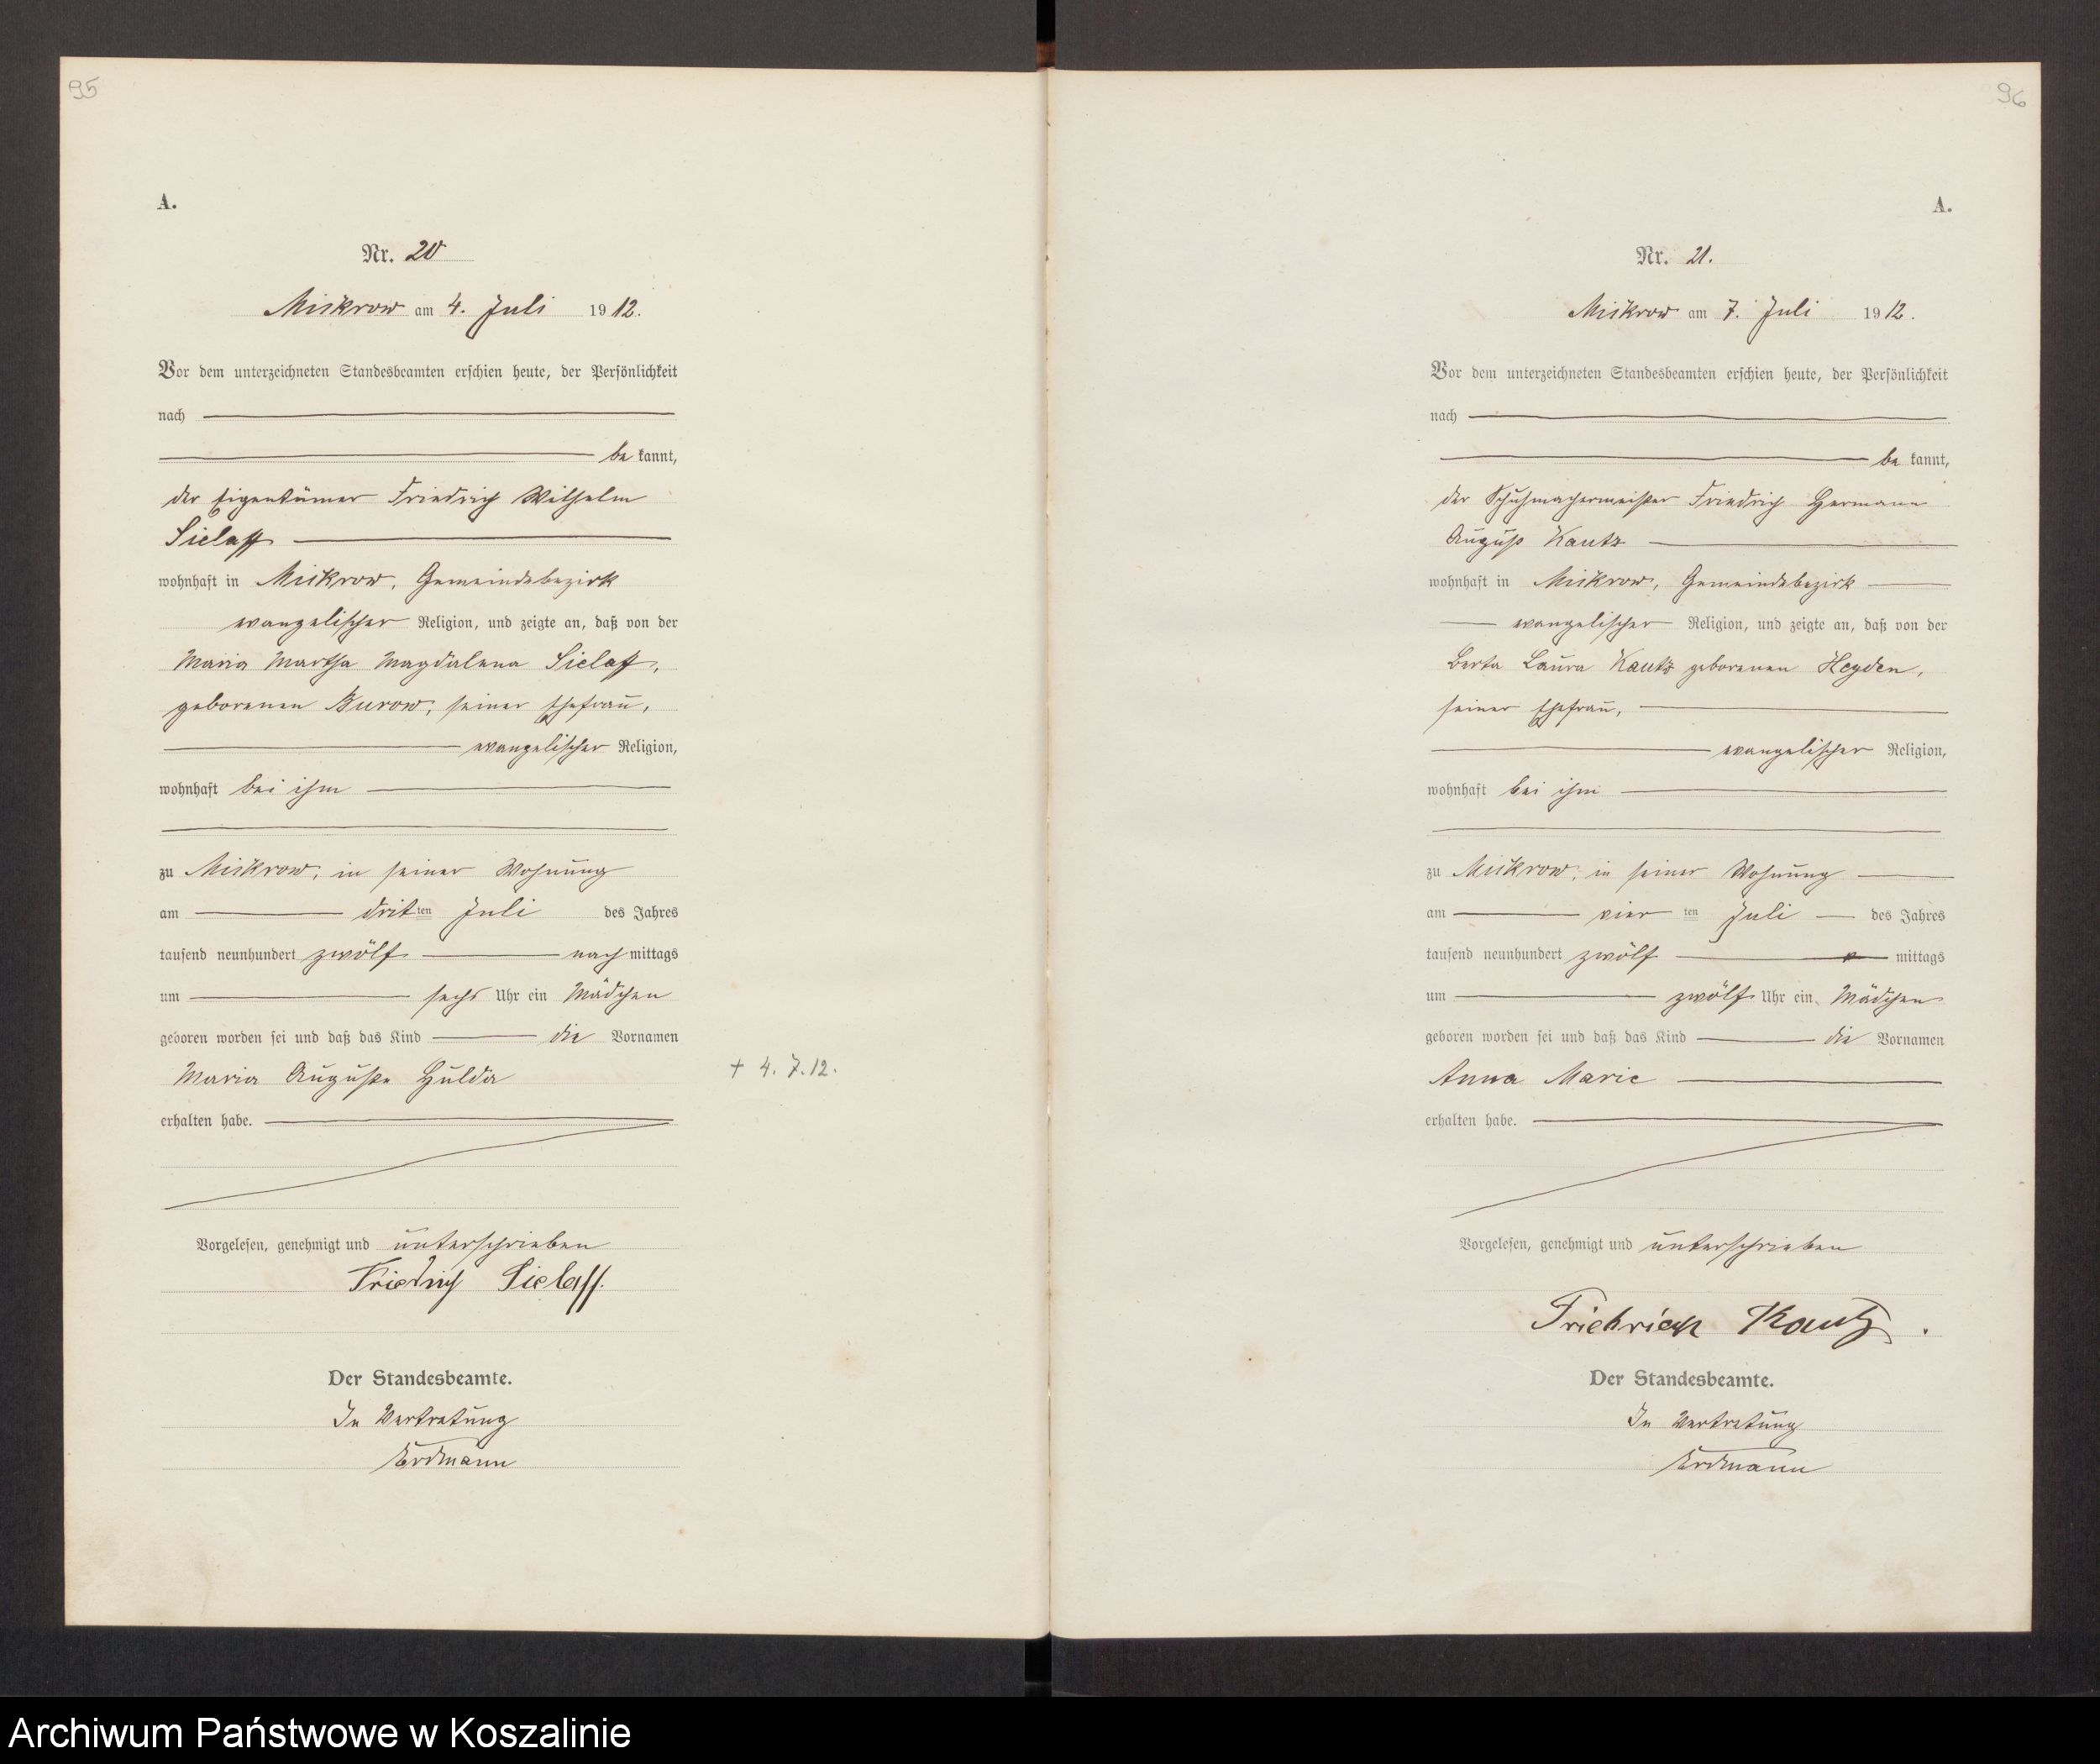 95
A.
Nr. 20
Mickrow am 4. Juli 1912.
Vor dem unterzeichneten Standesbeamten erschien heute, der Persönlichkeit
nach
be kannt,
der Eigentümer Friedrich Wilhelm
Sielaff
wohnhaft in Mickrow, Gemeindebezirk
evangelischer Religion, und zeigte an, daß von der
Maria Martha Magdalena Sielaff,
geborenen Burow, seiner Ehefrau,
evangelischer Religion,
wohnhaft bei ihm
zu Mickrow, in seiner Wohnung
am dritten Juli des Jahres
tausend neunhundert zwölf nachmittags
um sechs Uhr ein Mädchen
geboren worden sei und daß das Kind die Vornamen
Maria Auguste Hulda
+ 4. 7. 12.
erhalten habe.
Vorgelesen, genehmigt und unterschrieben
Friedrich Sielaff.
Der Standesbeamte.
In Vertretung
Erdmann
96
A.
Nr. 21.
Mickrow am 7. Juli 1912.
Vor dem unterzeichneten Standesbeamten erschien heute, der Persönlichkeit
nach
be kannt,
der Schuhmachermeister Friedrich Hermann
August Kautz
wohnhaft in Mickrow, Gemeindebezirk
evangelischer Religion, und zeigte an, daß von der
Berta Laura Kautz geborenen Heyden,
seiner Ehefrau,
evangelischer Religion,
wohnhaft bei ihm
zu Mickrow, in seiner Wohnung
am vier ten Juli des Jahres
tausend neunhundert zwölf mittags
um zwölf Uhr ein Mädchen
geboren worden sei und daß das Kind die Vornamen
Anna Marie
erhalten habe.
Vorgelesen, genehmigt und unterschrieben
Friedrich Kautz.
Der Standesbeamte.
In Vertretung
Erdmann
Archiwum Państwowe w Koszalinie